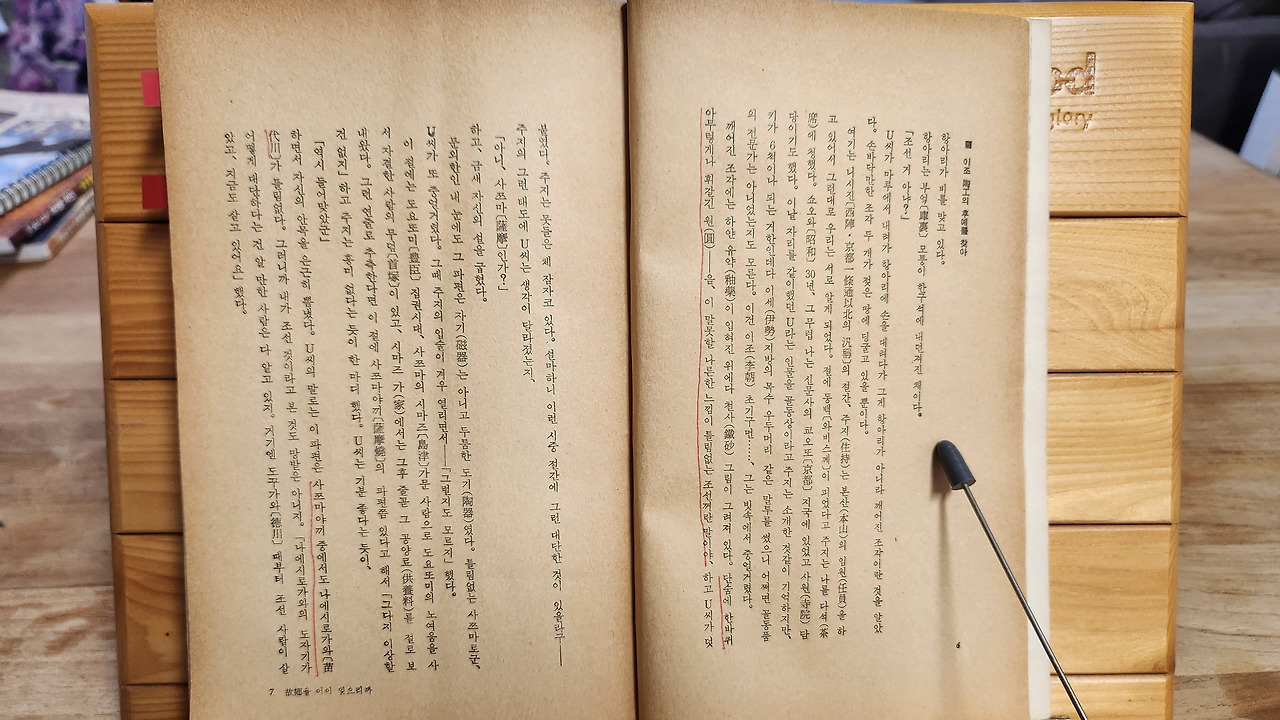 ■ 이조 陶工의 후예를 찾아
항아리가 비를 맞고 있다.
항아리는 부엌(庫裏) 모퉁이 한구석에 내던져진 채이다.
「조선 게 아냐?」
U씨가 마루에서 내려가 항아리에 손을 대려다가 그게 항아리가 아니라 깨어진 조각이란 것을 알았
다. 손바닥만한 조각 두 개가 젖은 땅에 딩굴고 있을 뿐이다.
여기는 니시진[西陣·京都一條通以北의 汎稱]의 절간, 주지(住持)는 본산(本山)의 임원(任員)을 하
고 있어서 그런대로 우리는 서로 알게 되었다. 절에 동백[와비스께]이 피었다고 주지는 나를 다석(茶
席)에 청했다. 쇼오와[昭和] 30년, 그 무렵 나는 신문사의 쿄오또[京都] 지국에 있었고 사원(寺院) 담
당이기도 했다. 이날 자리를 같이했던 U라는 인물을 골동상이라고 주지는 소개한 것같이 기억하지만,
키가 6척이나 되는 거한인데다 이세(伊勢) 지방의 목수 우두머리 같은 말투를 썼으니 어쩌면 골동품
의 전문가는 아니었는지도 모른다. 이건 이조(李朝) 초기구먼……, 그는 빗속에서 중얼거렸다.
깨어진 조각에는 하얀 유약(釉藥)이 입혀진 위에다 철사(鐵砂) 그림이 그려져 있다. 단숨에 한바퀴
아무렇게나 휘갈긴 원(圓)──음, 이 말못할 나른한 느낌이 틀림없는 조선꺼란 말이야, 하고 U씨가 덧
6
붙였다. 주지는 못들은 체 잠자코 있다. 설마하니 이런 시중 절간에 그런 대단한 것이 있을라구──
주지의 그런 태도에 U씨는 생각이 달라졌는지,
「아니, 사쯔마[薩摩]인가?」
하고, 금세 자신의 설을 굽혔다.
문외한인 내 눈에도 그 파편은 자기(磁器)는 아니고 두툼한 도기(陶器)였다. 틀림없는 사쯔마로군,
U씨가 또 중얼거렸다. 그때 주지의 입술이 겨우 열리면서──「그럴지도 모르지」했다.
이 절에는 도요또미[豊臣] 집권시대, 사쯔마의 시마즈[島津]가문 사람으로 도요또미의 노여움을 사
서 자결한 사람의 무덤[首塚]이 있고, 시마즈 가(家)에서는 그후 줄곧 그 공양료(供養料)를 절로 보
내왔다. 그런 연줄로 추측한다면 이 절에 사쯔마야끼[薩摩燒]의 파편쯤 있다고 해서 「그다지 이상할
건 없지」하고 주지는 흥미 없다는 듯이 한 마디 했다. U씨는 기분 좋다는 듯이,
「역시 들어맞았군」
하면서 자신의 안목을 은근히 뽐냈다. U씨의 말로는 이 파편은 사쯔마야끼 중에서도 나에시로가와[苗
代川]가 틀림없다. 그러니까 내가 조선 것이라고 본 것도 망발은 아니지. 「나에시로가와의 도자기가
어떻게 대단하다는 건 알 만한 사람은 다 알고 있지. 거기엔 도꾸가와[德川] 때부터 조선 사람이 살
았고, 지금도 살고 있어요」했다.
7 故鄕을 어이 잊으리까
od
glory